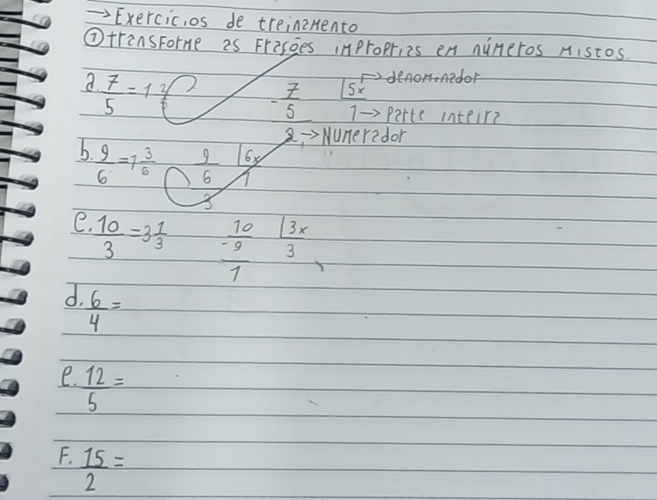 → Exercícios de treinamento
① transforme as Frações impróprias em números mistos.
a. 7/5 = 1 2/5    7 |5x → denominador
- 5    1 → Parte inteira
2 → Numerador
b. 9/6 = 1 3/6    9 |6x
6    1
3
c. 10/3 = 3 1/3    10 |3x
- 9    3
1
d. 6/4 =
e. 12/5 =
F. 15/2 =